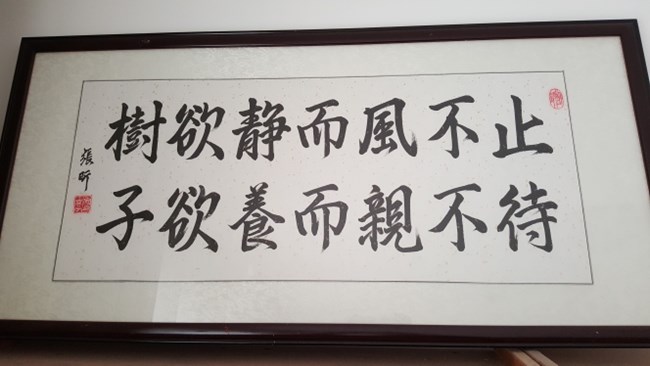 樹欲静而風不止
子欲養而親不待
張昕